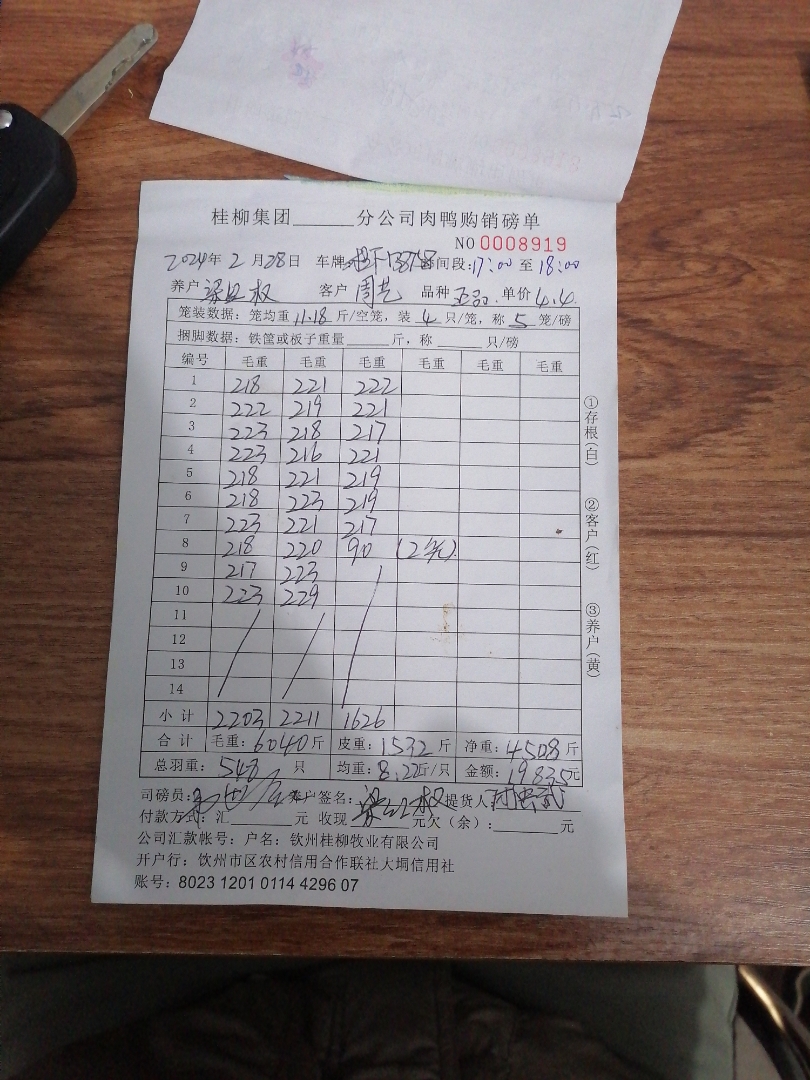 桂柳集团______分公司肉鸭购销磅单
NO 0008919
2024年 2月28日 车牌 时间段:17:00 至 18:00
养户 权 客户 周艺 品种 单价 4.4
笼装数据：笼均重 11.18 斤/空笼，装 4 只/笼，称 5 笼/磅
捆脚数据：铁筐或板子重量______斤，称______只/磅
编号 毛重 毛重 毛重 毛重 毛重 毛重
1 218 221 222
2 222 219 221
3 223 218 217
4 223 216 221
5 218 221 219
6 218 223 219
7 223 221 217
8 218 220 90 (2笼)
9 217 223
10 223 229
11
12
13
14
小计 2203 2211 1626
合计 毛重：6040斤 皮重：1532斤 净重：4508斤
总羽重：548只 均重：8.22斤/只 金额：19835元
司磅员： 养户签名： 权 提货人
付款方式：汇______元 收现______元欠（余）：______元
公司汇款帐号：户名：钦州桂柳牧业有限公司
开户行：钦州市区农村信用合作联社大垌信用社
账号：8023 1201 0114 4296 07
①存根(白)
②客户(红)
③养户(黄)